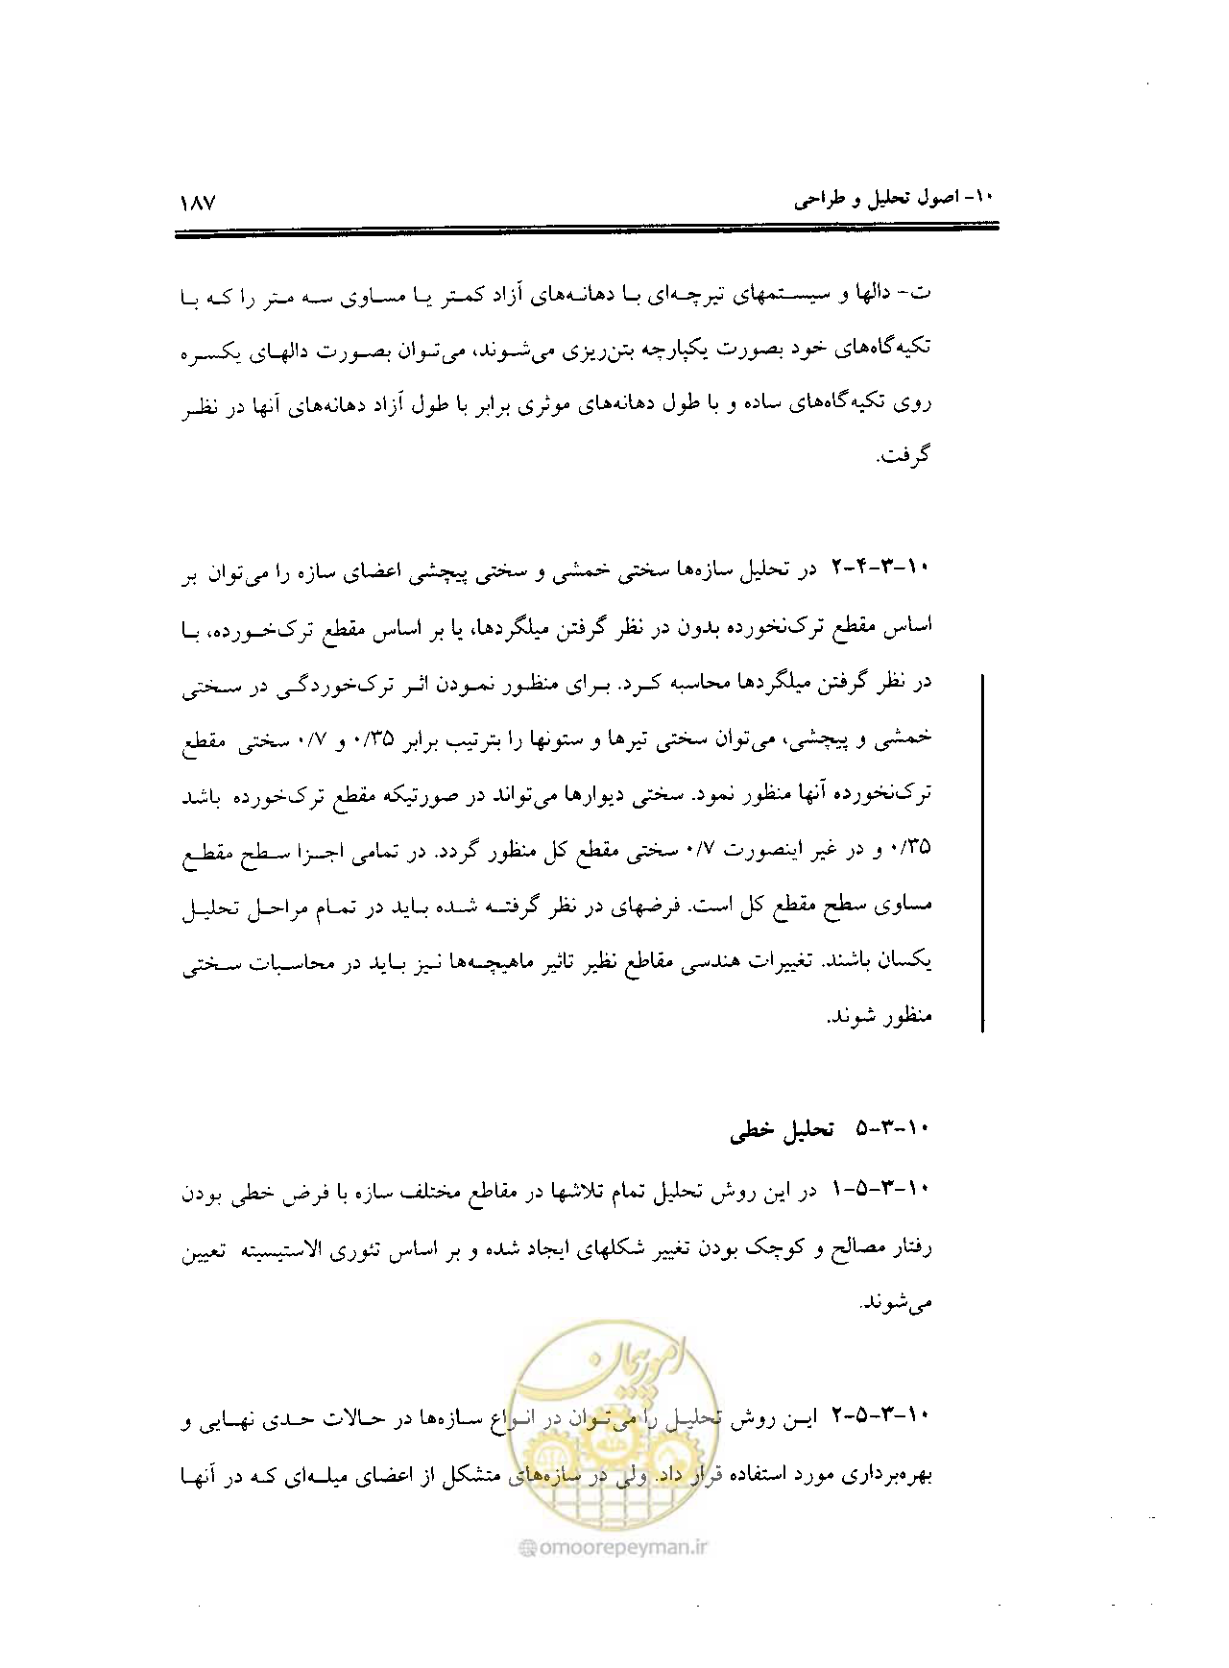 ۱۰- اصول تحلیل و طراحی ۱۸۷
ت- دالها و سیستمهای تیرچه‌ای با دهانه‌های آزاد کمتر یا مساوی سه متر را که با
تکیه‌گاه‌های خود بصورت یکپارچه بتن‌ریزی می‌شوند، می‌توان بصورت دالهای یکسره
روی تکیه‌گاه‌های ساده و با طول دهانه‌های موثری برابر با طول آزاد دهانه‌های آنها در نظر
گرفت.
۱۰-۳-۴-۲ در تحلیل سازه‌ها سختی خمشی و سختی پیچشی اعضای سازه را می‌توان بر
اساس مقطع ترک‌نخورده بدون در نظر گرفتن میلگردها، یا بر اساس مقطع ترک‌خورده، با
در نظر گرفتن میلگردها محاسبه کرد. برای منظور نمودن اثر ترک‌خوردگی در سختی
خمشی و پیچشی، می‌توان سختی تیرها و ستونها را بترتیب برابر ۰/۳۵ و ۰/۷ سختی مقطع
ترک‌نخورده آنها منظور نمود. سختی دیوارها می‌تواند در صورتیکه مقطع ترک‌خورده باشد
۰/۳۵ و در غیر اینصورت ۰/۷ سختی مقطع کل منظور گردد. در تمامی اجزا سطح مقطع
مساوی سطح مقطع کل است. فرضهای در نظر گرفته شده باید در تمام مراحل تحلیل
یکسان باشند. تغییرات هندسی مقاطع نظیر تاثیر ماهیچه‌ها نیز باید در محاسبات سختی
منظور شوند.
۱۰-۳-۵ تحلیل خطی
۱۰-۳-۵-۱ در این روش تحلیل تمام تلاشها در مقاطع مختلف سازه با فرض خطی بودن
رفتار مصالح و کوچک بودن تغییر شکلهای ایجاد شده و بر اساس تئوری الاستیسیته تعیین
می‌شوند.
۱۰-۳-۵-۲ این روش تحلیل را می‌توان در انواع سازه‌ها در حالات حدی نهایی و
بهره‌برداری مورد استفاده قرار داد. ولی در سازه‌های متشکل از اعضای میله‌ای که در آنها
امور پیمان
@omoorepeyman.ir